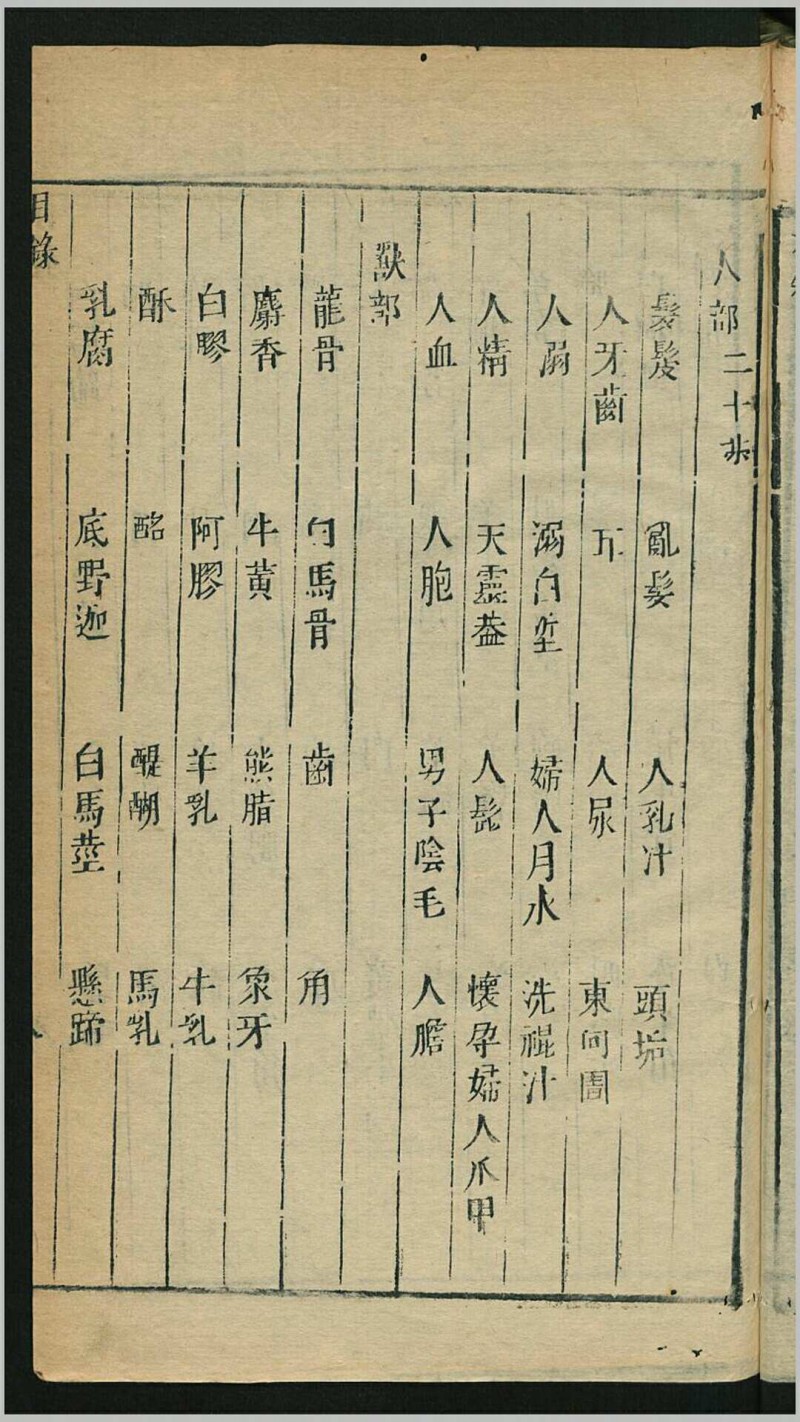 人部二十朩
髮髲 亂髮 人乳汁 頭垢
人牙齒 人尿 東向圊
人溺 溺白垽 婦人月水 洗褌汁
人精 天靈蓋 人髭 懷孕婦人爪甲
人血 人胞 男子陰毛 人膽
獸部
龍骨 白馬骨 齒 角
麝香 牛黃 熊脂 象牙
白膠 阿膠 羊乳 牛乳
酥 酪 醍醐 馬乳
乳腐 底野迦 白馬莖 懸蹄
目錄